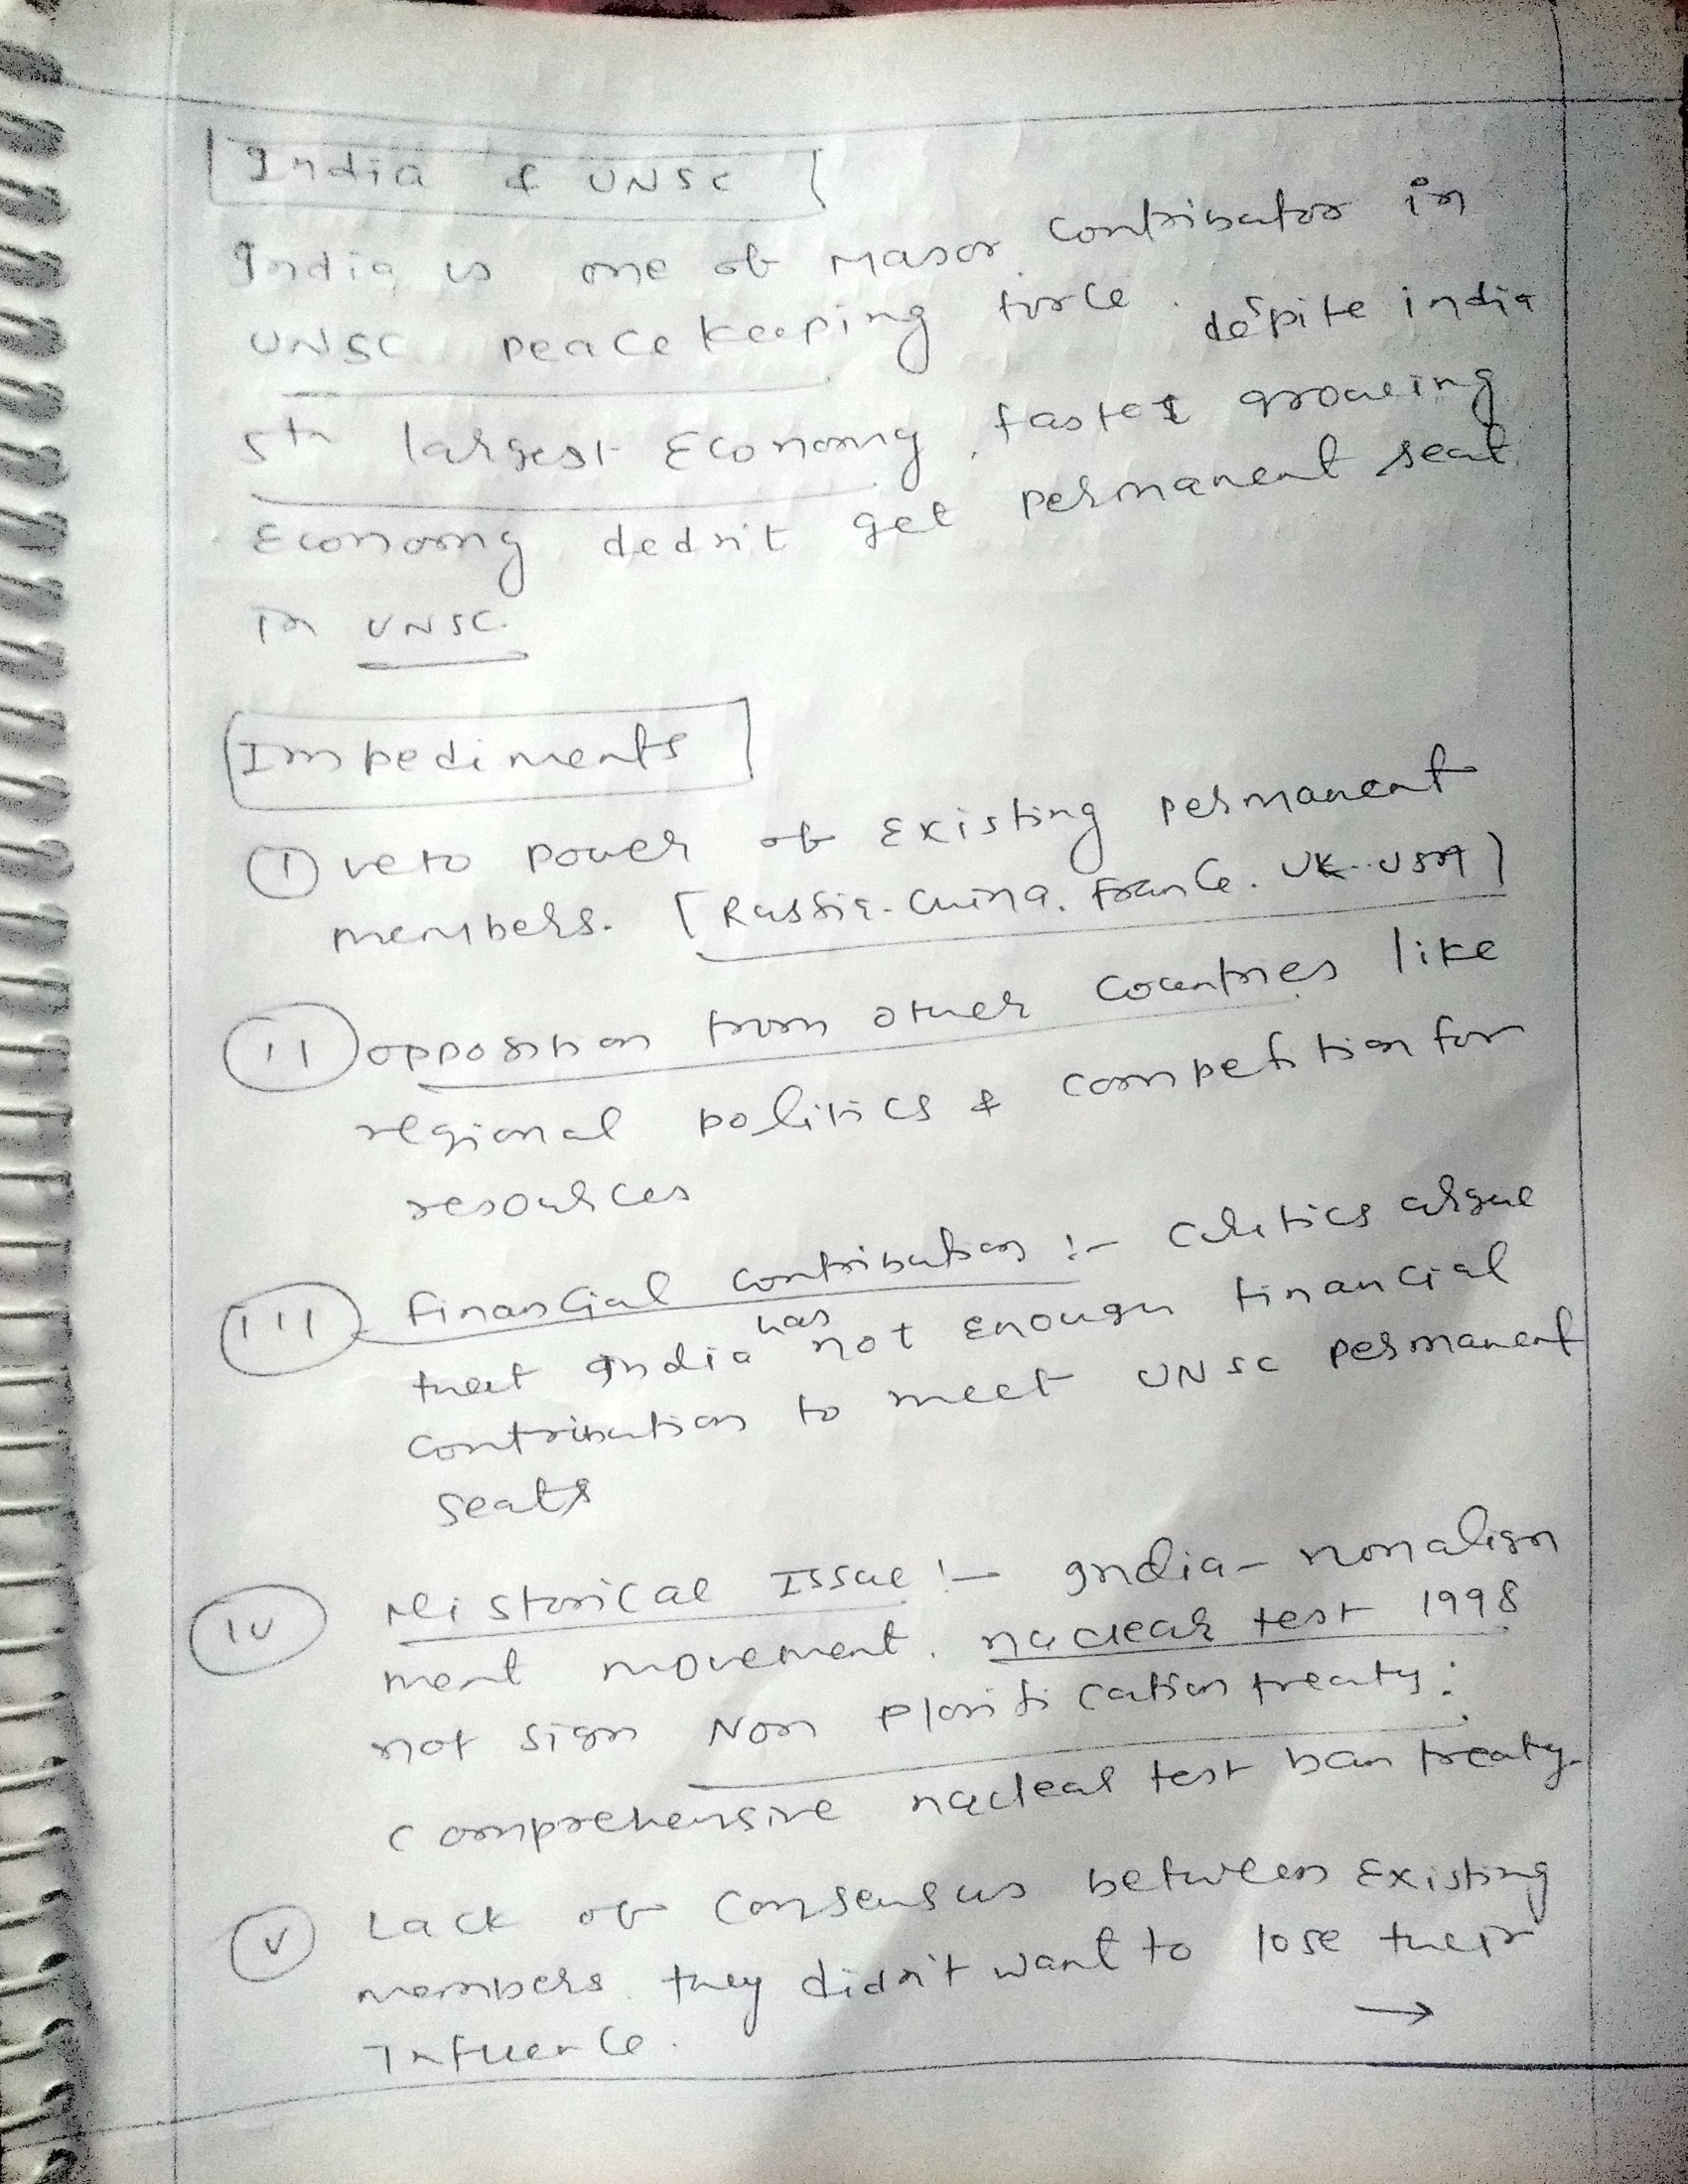 India & UNSC
India is one of Masor contributor in
UNSC peacekeeping force. despite india
5th largest Economy, fastest growing
Economy dedn't get permanent seat
in UNSC.
Impediments
(I) veto power of Existing permanent
members. [Russia. China. France. UK. USA]
(II) opposition from other countries like
regional politics & competition for
resources
(III) financial contribution :- Critics argue
that India has not enough financial
contribution to meet UNSC permanent
seats
(IV) Historical Issue :- India - nonalign
ment movement. nuclear test 1998
not sign Non Plorification treaty:
comprehensive nuclear test ban treaty.
(V) Lack of consensus between Existing
members. they didn't want to lose their
Influence. →